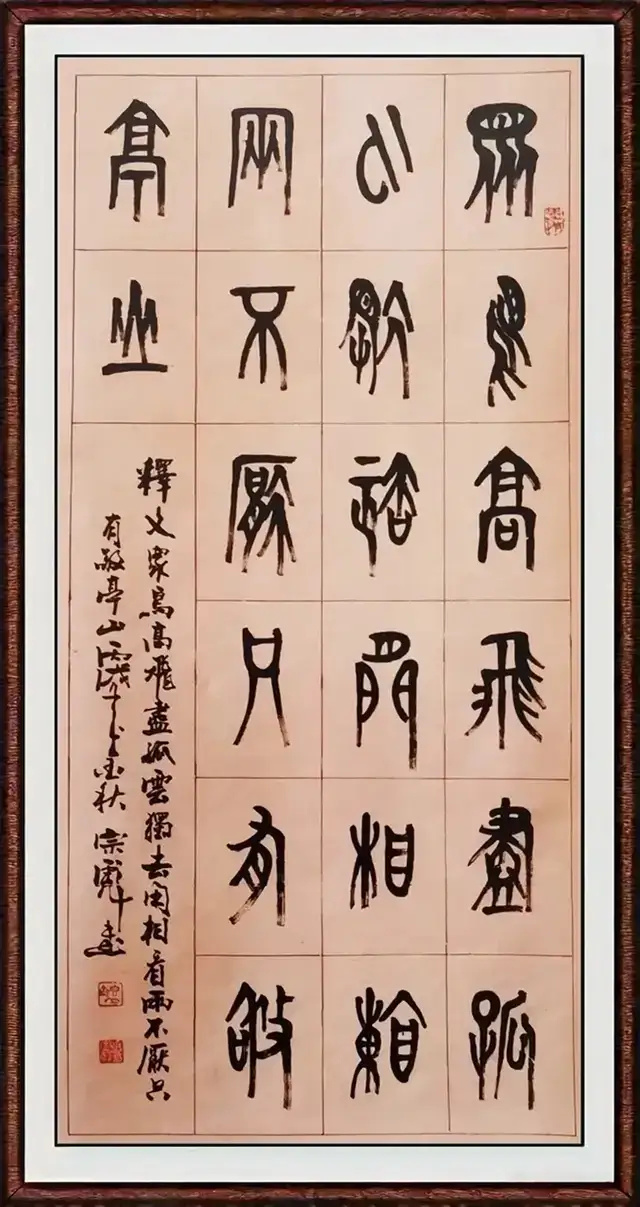 眾鳥高飛盡孤
雲獨去閑相看
兩不厭只有敬
亭山
釋文眾鳥高飛盡孤雲獨去閑相看兩不厭只
有敬亭山